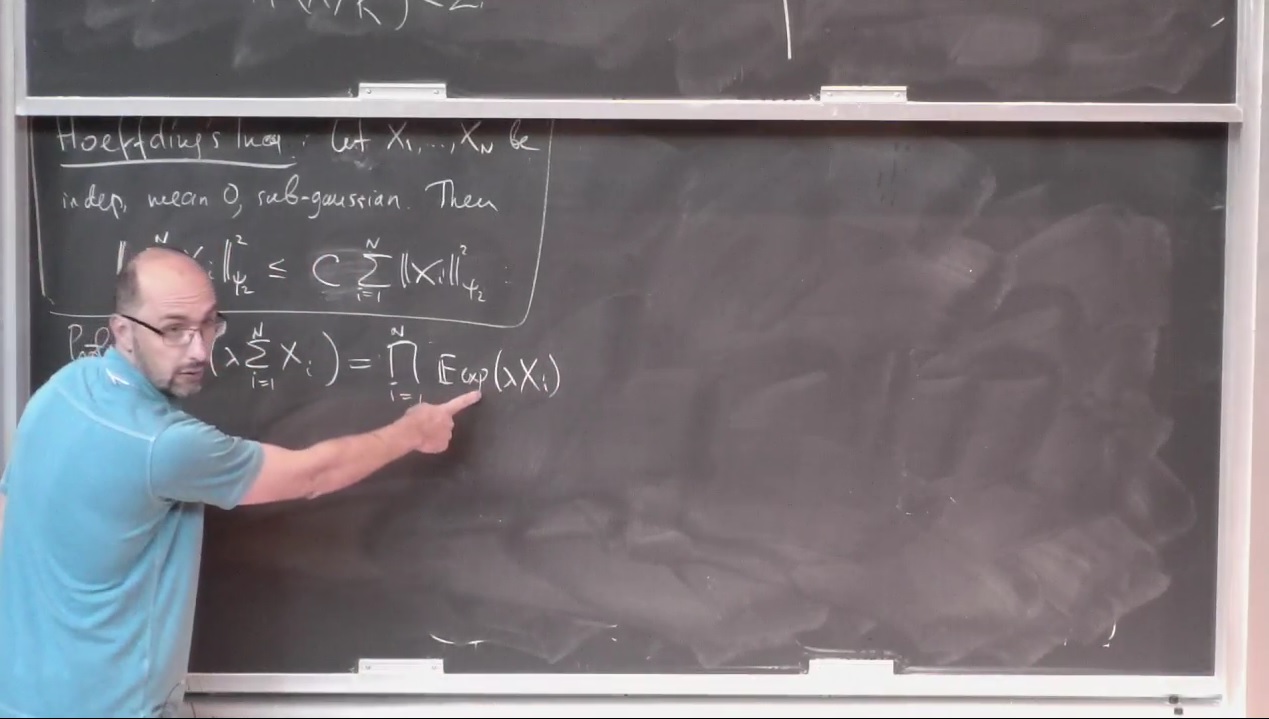 Hoeffding's Ineq.: Let X₁,...,X_N be
indep, mean 0, sub-gaussian. Then
‖ N X_i‖²_ψ₂ ≤ C ∑_{i=1}^N ‖X_i‖²_ψ₂.
(λ ∑_{i=1}^N X_i) = ∏_{i=1}^N E exp(λX_i)